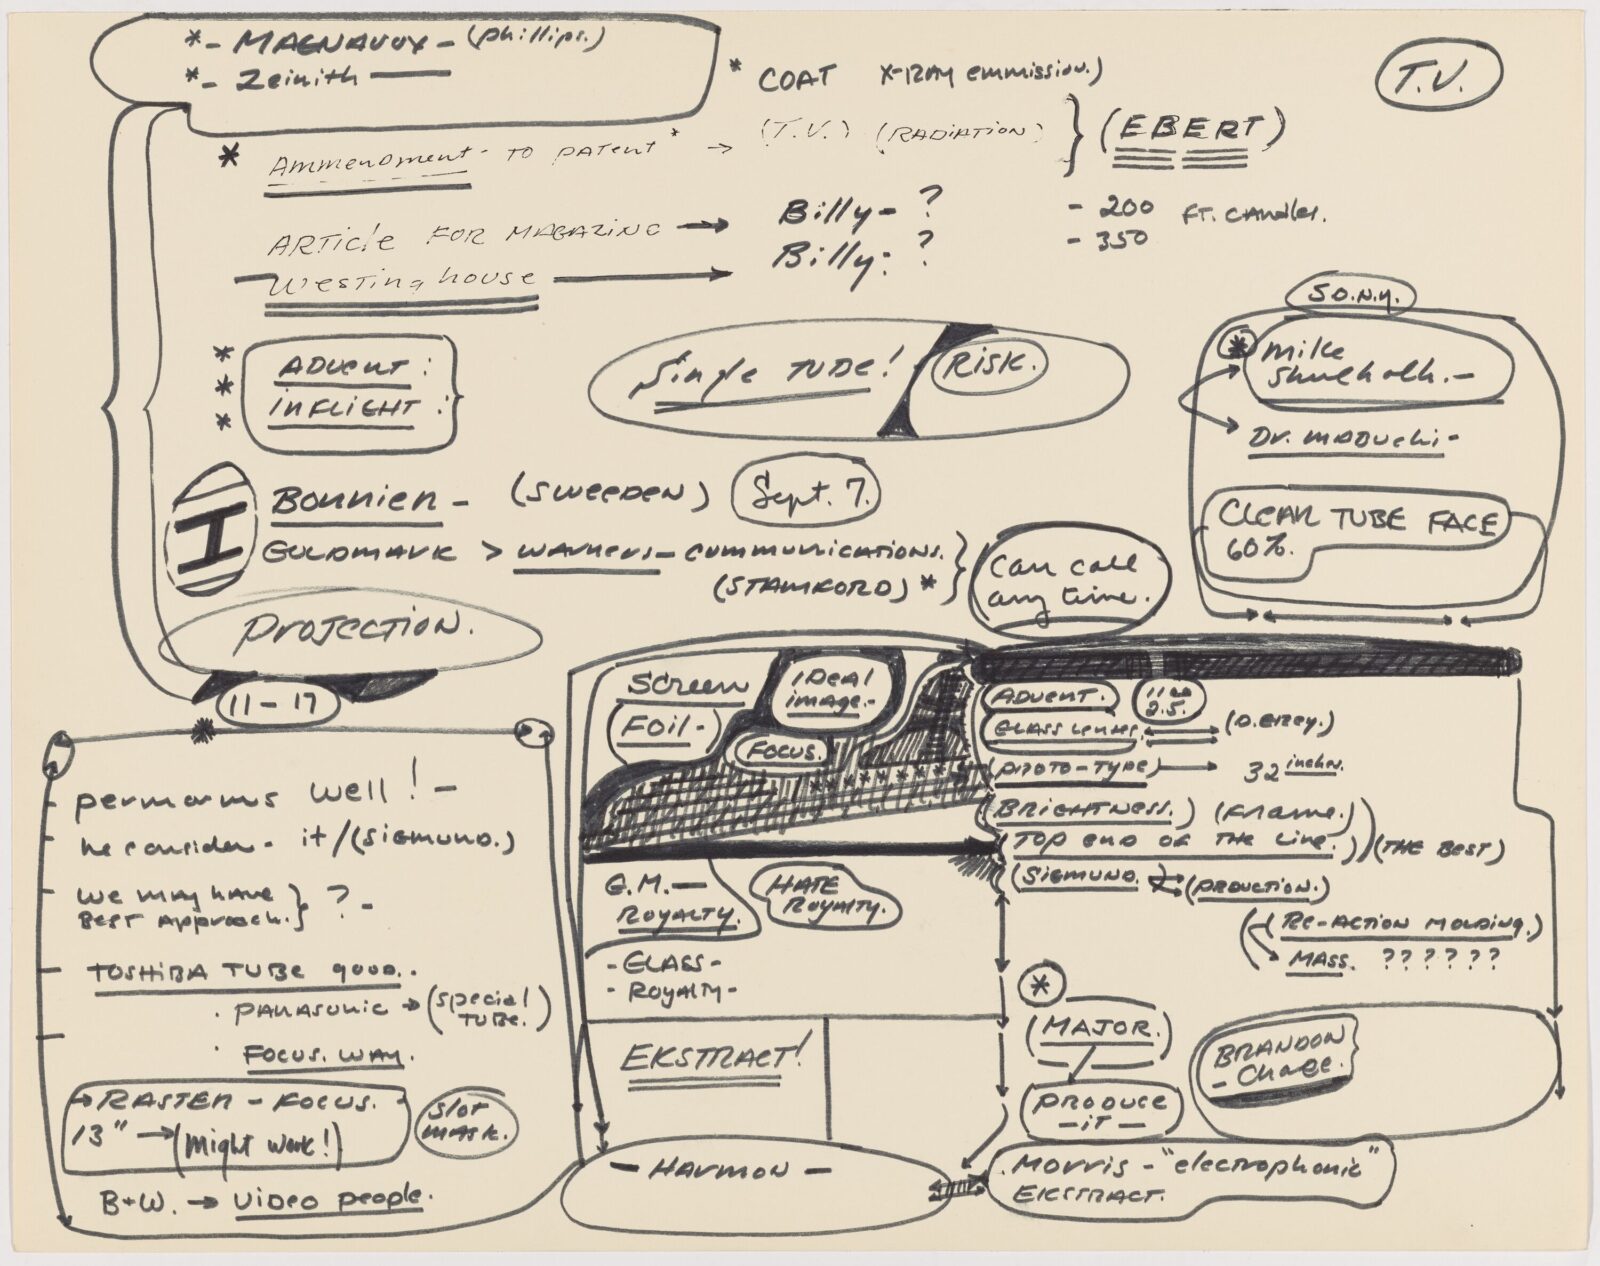 *- MAGNAVOX - (phillips.)
*- Zeinith —
* COAT X-RAY emmission.)
T.V.
* Ammendment - TO PATENT * → (T.V.) (RADIATION) } (EBERT)
ARTicle FOR MAGAZINE → Billy - ? - 200 FT. CANdles.
Westinghouse → Billy: ? - 350
SO.N.Y.
* ADVENT :
*
* INFLIGHT :
Single TUBE!
RISK.
* Mike
- Dr. MAOUchi -
CLEAR TUBE FACE
60%.
I
Bonnien - (SWEEDEN) Sept. 7.
GOLDMARK > WARNERS - COMMUNICATIONS.
(STAMFORD) *
Can call
any time.
Projection.
11 - 17
Screen
Foil -
IDeal
image. -
FOCUS.
ADVENT.
GLASS Lenses.
(PROTO-TYPE) → 32 inches.
(BRIGHTNESS.) (Frame.)
(TOP END OF THE LINE.) (THE BEST)
(SIGMUND. (PRODUCTION.)
(RE-ACTION MOLDING.)
MASS. ? ? ? ? ? ?
permorms well! -
he consider - it / (SIGMUND.)
We may have
BEST Approach. } ? -
TOSHIBA TUBE 9000..
. PANASONIC → (special
TUBE.)
. FOCUS. WAY.
→ RASTER - FOCUS.
13" → (might work!)
Slot
mask.
B+W. → VIDEO people.
G.M. —
ROYALTY.
HATE
ROYALTY.
- GLASS -
- ROYALTY -
EKSTRACT!
- HARMON -
*
(MAJOR.)
PRODUCE
- iT -
BRANDON
- Chase.
. Morris - "electrophonic"
EKSTRACT.